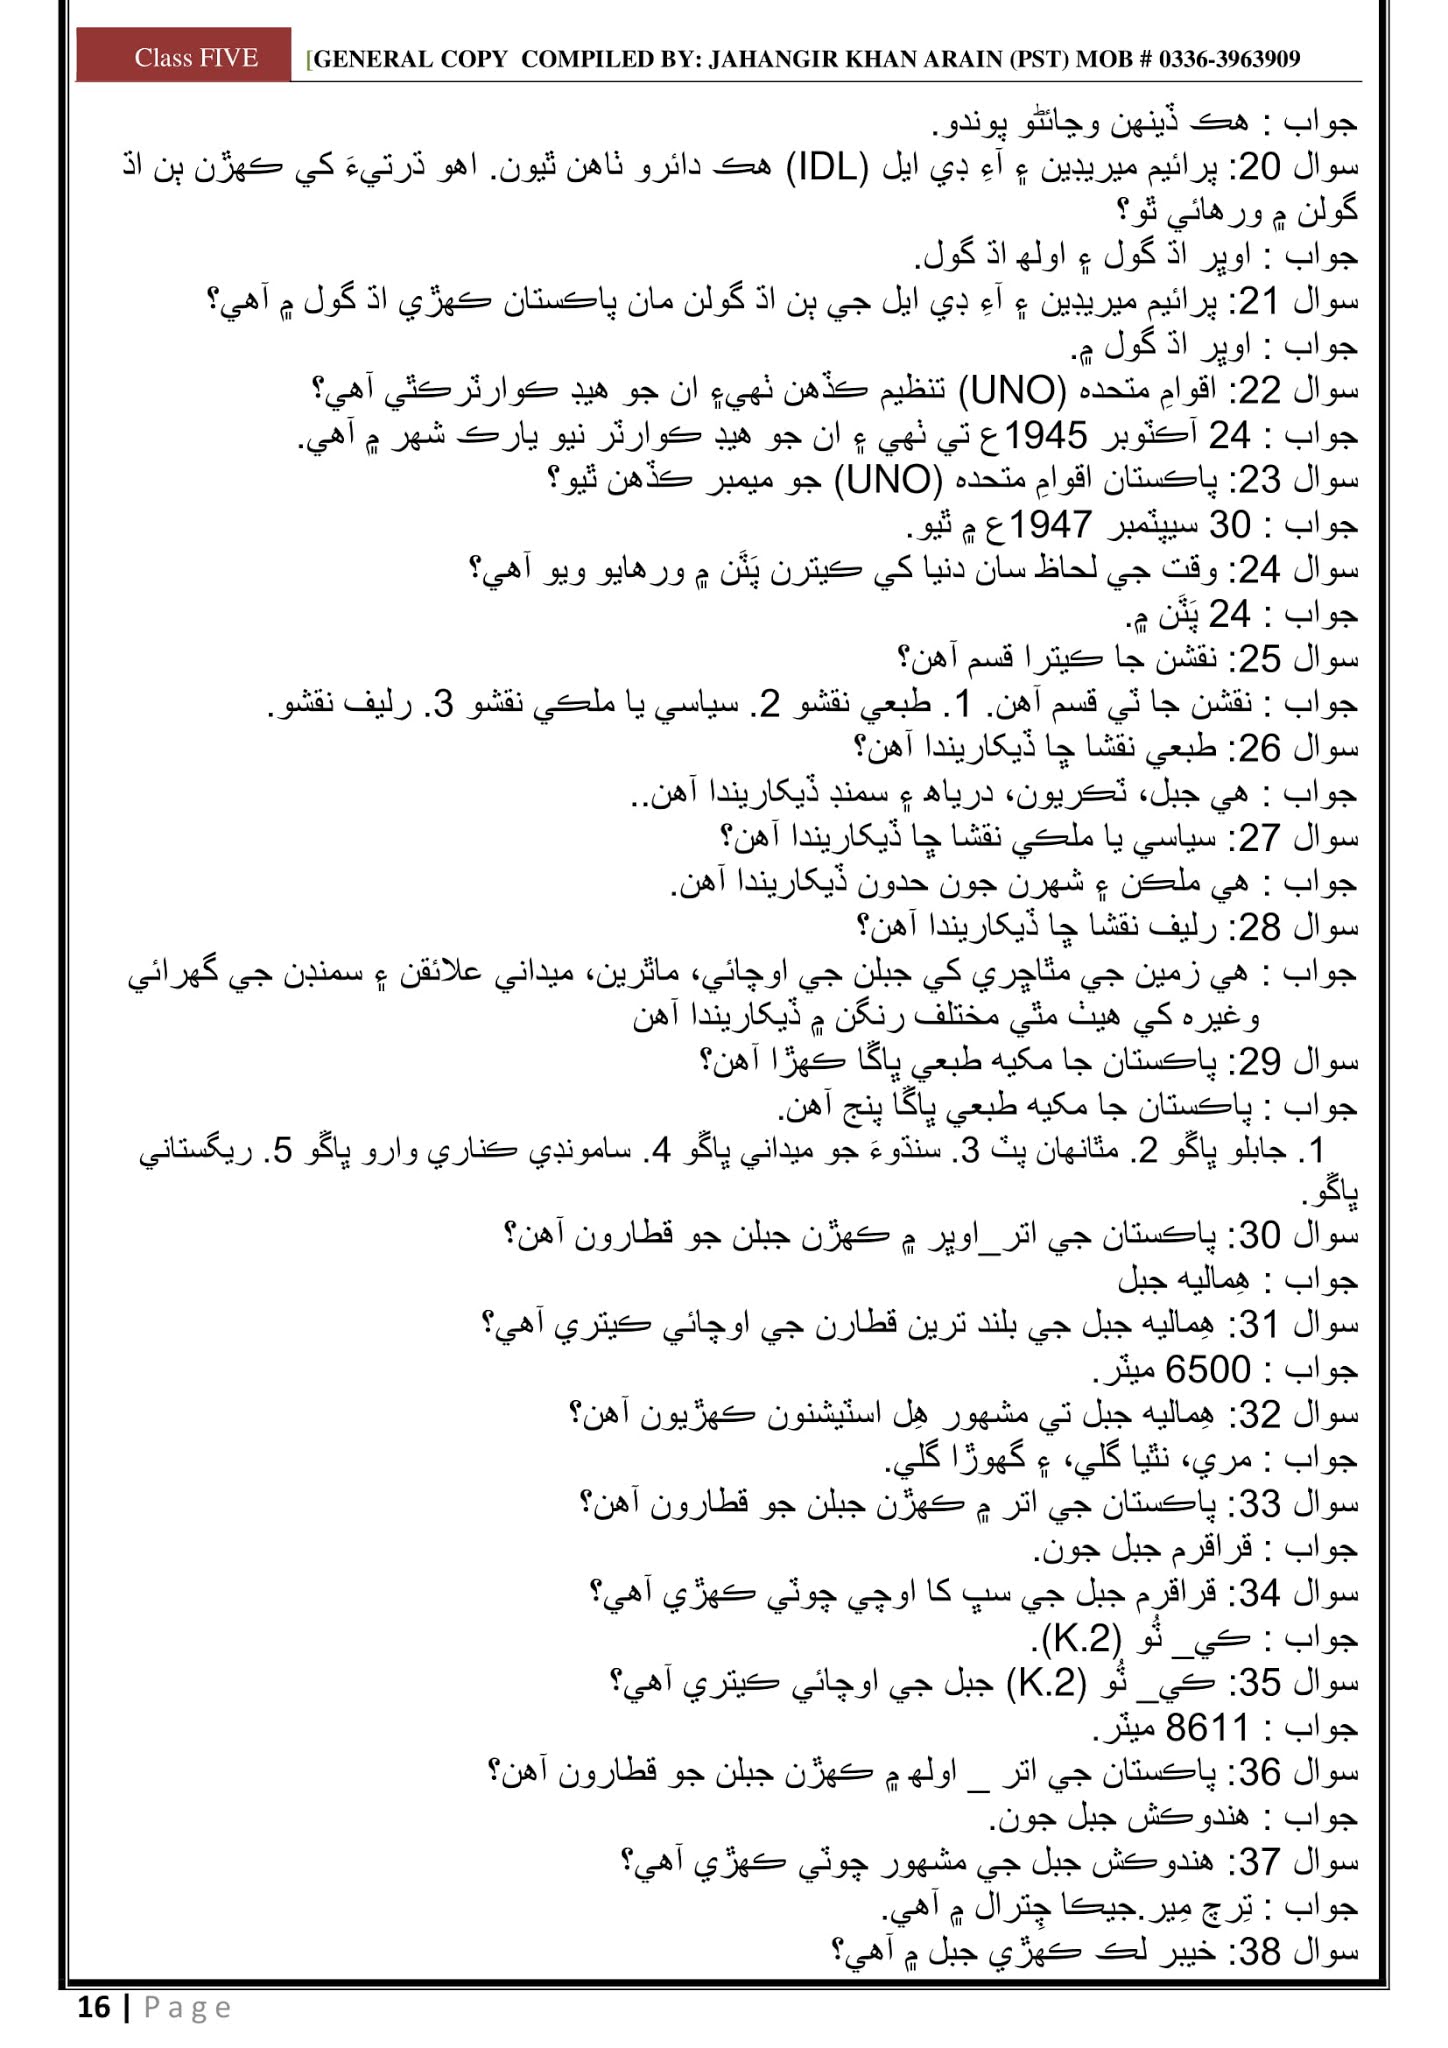 Class FIVE [GENERAL COPY COMPILED BY: JAHANGIR KHAN ARAIN (PST) MOB # 0336-3963909
جواب : هڪ ڏينهن وڃائڻو پوندو.
سوال 20: پرائيم ميريڊين ۽ آءِ ڊي ايل (IDL) هڪ دائرو ٺاهن ٿيون. اهو ڌرتيءَ کي ڪهڙن ٻن اڌ
گولن ۾ ورهائي ٿو؟
جواب : اوڀر اڌ گول ۽ اولهه اڌ گول.
سوال 21: پرائيم ميريڊين ۽ آءِ ڊي ايل جي ٻن اڌ گولن مان پاڪستان ڪهڙي اڌ گول ۾ آهي؟
جواب : اوڀر اڌ گول ۾.
سوال 22: اقوامِ متحده (UNO) تنظيم ڪڏهن ٺهي۽ ان جو هيڊ ڪوارٽرڪٿي آهي؟
جواب : 24 آڪٽوبر 1945ع تي ٺهي ۽ ان جو هيڊ ڪوارٽر نيو يارڪ شهر ۾ آهي.
سوال 23: پاڪستان اقوامِ متحده (UNO) جو ميمبر ڪڏهن ٿيو؟
جواب : 30 سيپٽمبر 1947ع ۾ ٿيو.
سوال 24: وقت جي لحاظ سان دنيا کي ڪيترن پَٽَن ۾ ورهايو ويو آهي؟
جواب : 24 پَٽَن ۾.
سوال 25: نقشن جا ڪيترا قسم آهن؟
جواب : نقشن جا ٽي قسم آهن. 1. طبعي نقشو 2. سياسي يا ملڪي نقشو 3. رليف نقشو.
سوال 26: طبعي نقشا ڇا ڏيکاريندا آهن؟
جواب : هي جبل، ٽڪريون، درياهه ۽ سمنڊ ڏيکاريندا آهن..
سوال 27: سياسي يا ملڪي نقشا ڇا ڏيکاريندا آهن؟
جواب : هي ملڪن ۽ شهرن جون حدون ڏيکاريندا آهن.
سوال 28: رليف نقشا ڇا ڏيکاريندا آهن؟
جواب : هي زمين جي مٿاڇري کي جبلن جي اوچائي، ماٿرين، ميداني علائقن ۽ سمنڊن جي گهرائي
وغيره کي هيٺ مٿي مختلف رنگن ۾ ڏيکاريندا آهن
سوال 29: پاڪستان جا مکيه طبعي ڀاڱا ڪهڙا آهن؟
جواب : پاڪستان جا مکيه طبعي ڀاڱا پنج آهن.
1. جابلو ڀاڱو 2. مٿانهان پٽ 3. سنڌوءَ جو ميداني ڀاڱو 4. سامونڊي ڪناري وارو ڀاڱو 5. ريگستاني
ڀاڱو.
سوال 30: پاڪستان جي اتر_اوڀر ۾ ڪهڙن جبلن جو قطارون آهن؟
جواب : هِماليه جبل
سوال 31: هِماليه جبل جي بلند ترين قطارن جي اوچائي ڪيتري آهي؟
جواب : 6500 ميٽر.
سوال 32: هِماليه جبل تي مشهور هِل اسٽيشنون ڪهڙيون آهن؟
جواب : مري، نٿيا گلي، ۽ گهوڙا گلي.
سوال 33: پاڪستان جي اتر ۾ ڪهڙن جبلن جو قطارون آهن؟
جواب : قراقرم جبل جون.
سوال 34: قراقرم جبل جي سڀ کا اوچي چوٽي ڪهڙي آهي؟
جواب : ڪي_ ٽُو (K.2).
سوال 35: ڪي_ ٽُو (K.2) جبل جي اوچائي ڪيتري آهي؟
جواب : 8611 ميٽر.
سوال 36: پاڪستان جي اتر _ اولهه ۾ ڪهڙن جبلن جو قطارون آهن؟
جواب : هندوڪش جبل جون.
سوال 37: هندوڪش جبل جي مشهور چوٽي ڪهڙي آهي؟
جواب : تِرچ مِير.جيڪا چِترال ۾ آهي.
سوال 38: خيبر لڪ ڪهڙي جبل ۾ آهي؟
16 | Page